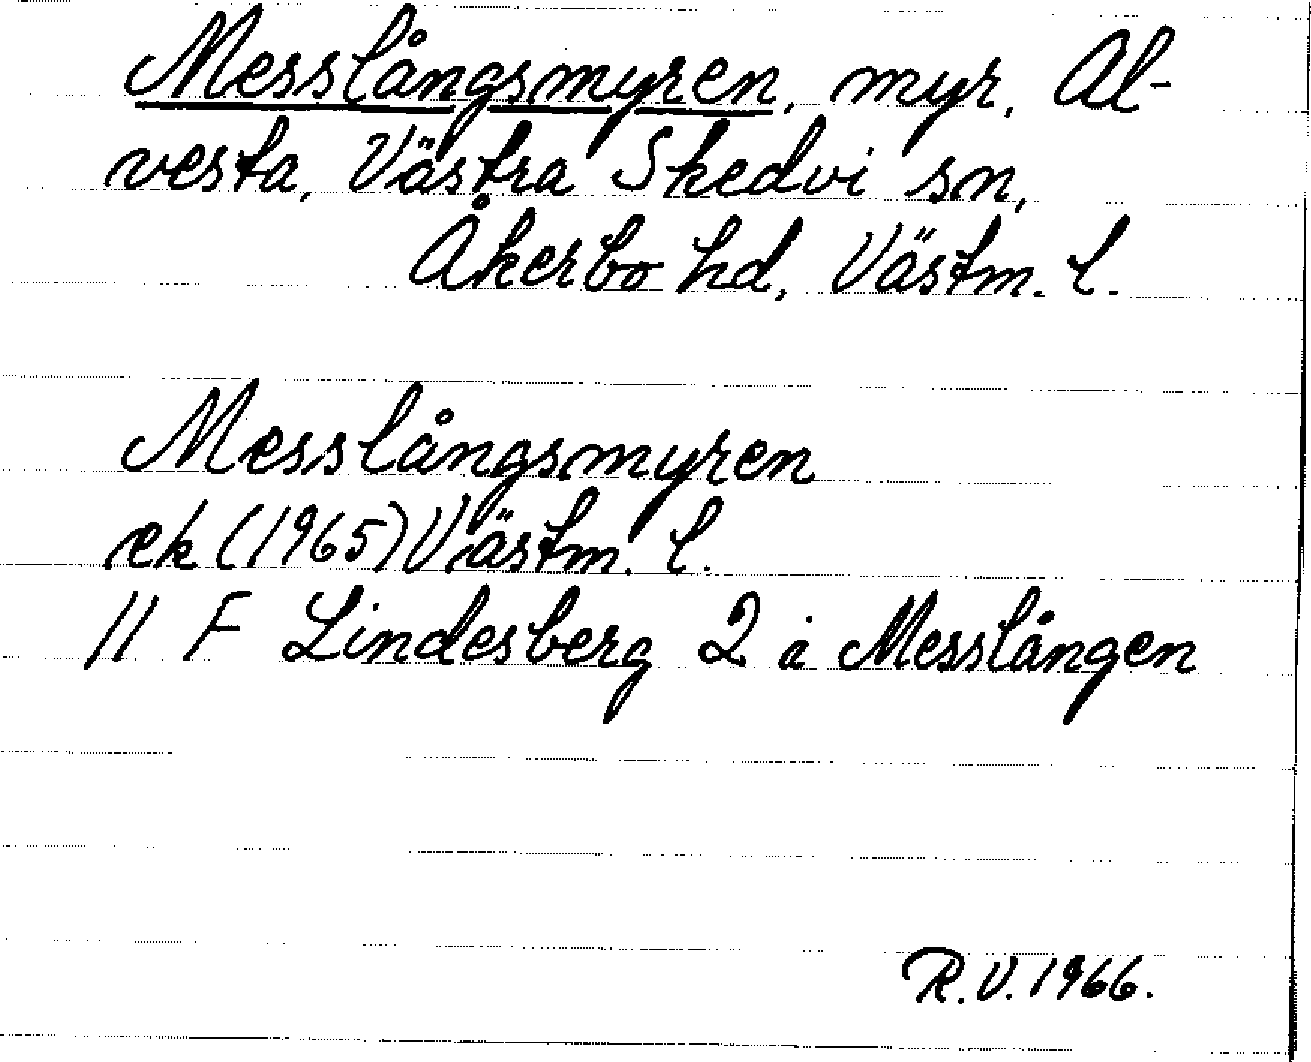 Messlångsmyren, myr, Al-
vesta, Västra Skedvi sn,
Åkerbo hd, Västm. l.
Messlångsmyren
ek (1965) Västm. l.
11 F Lindesberg 2 i Messlången
R.V. 1966.